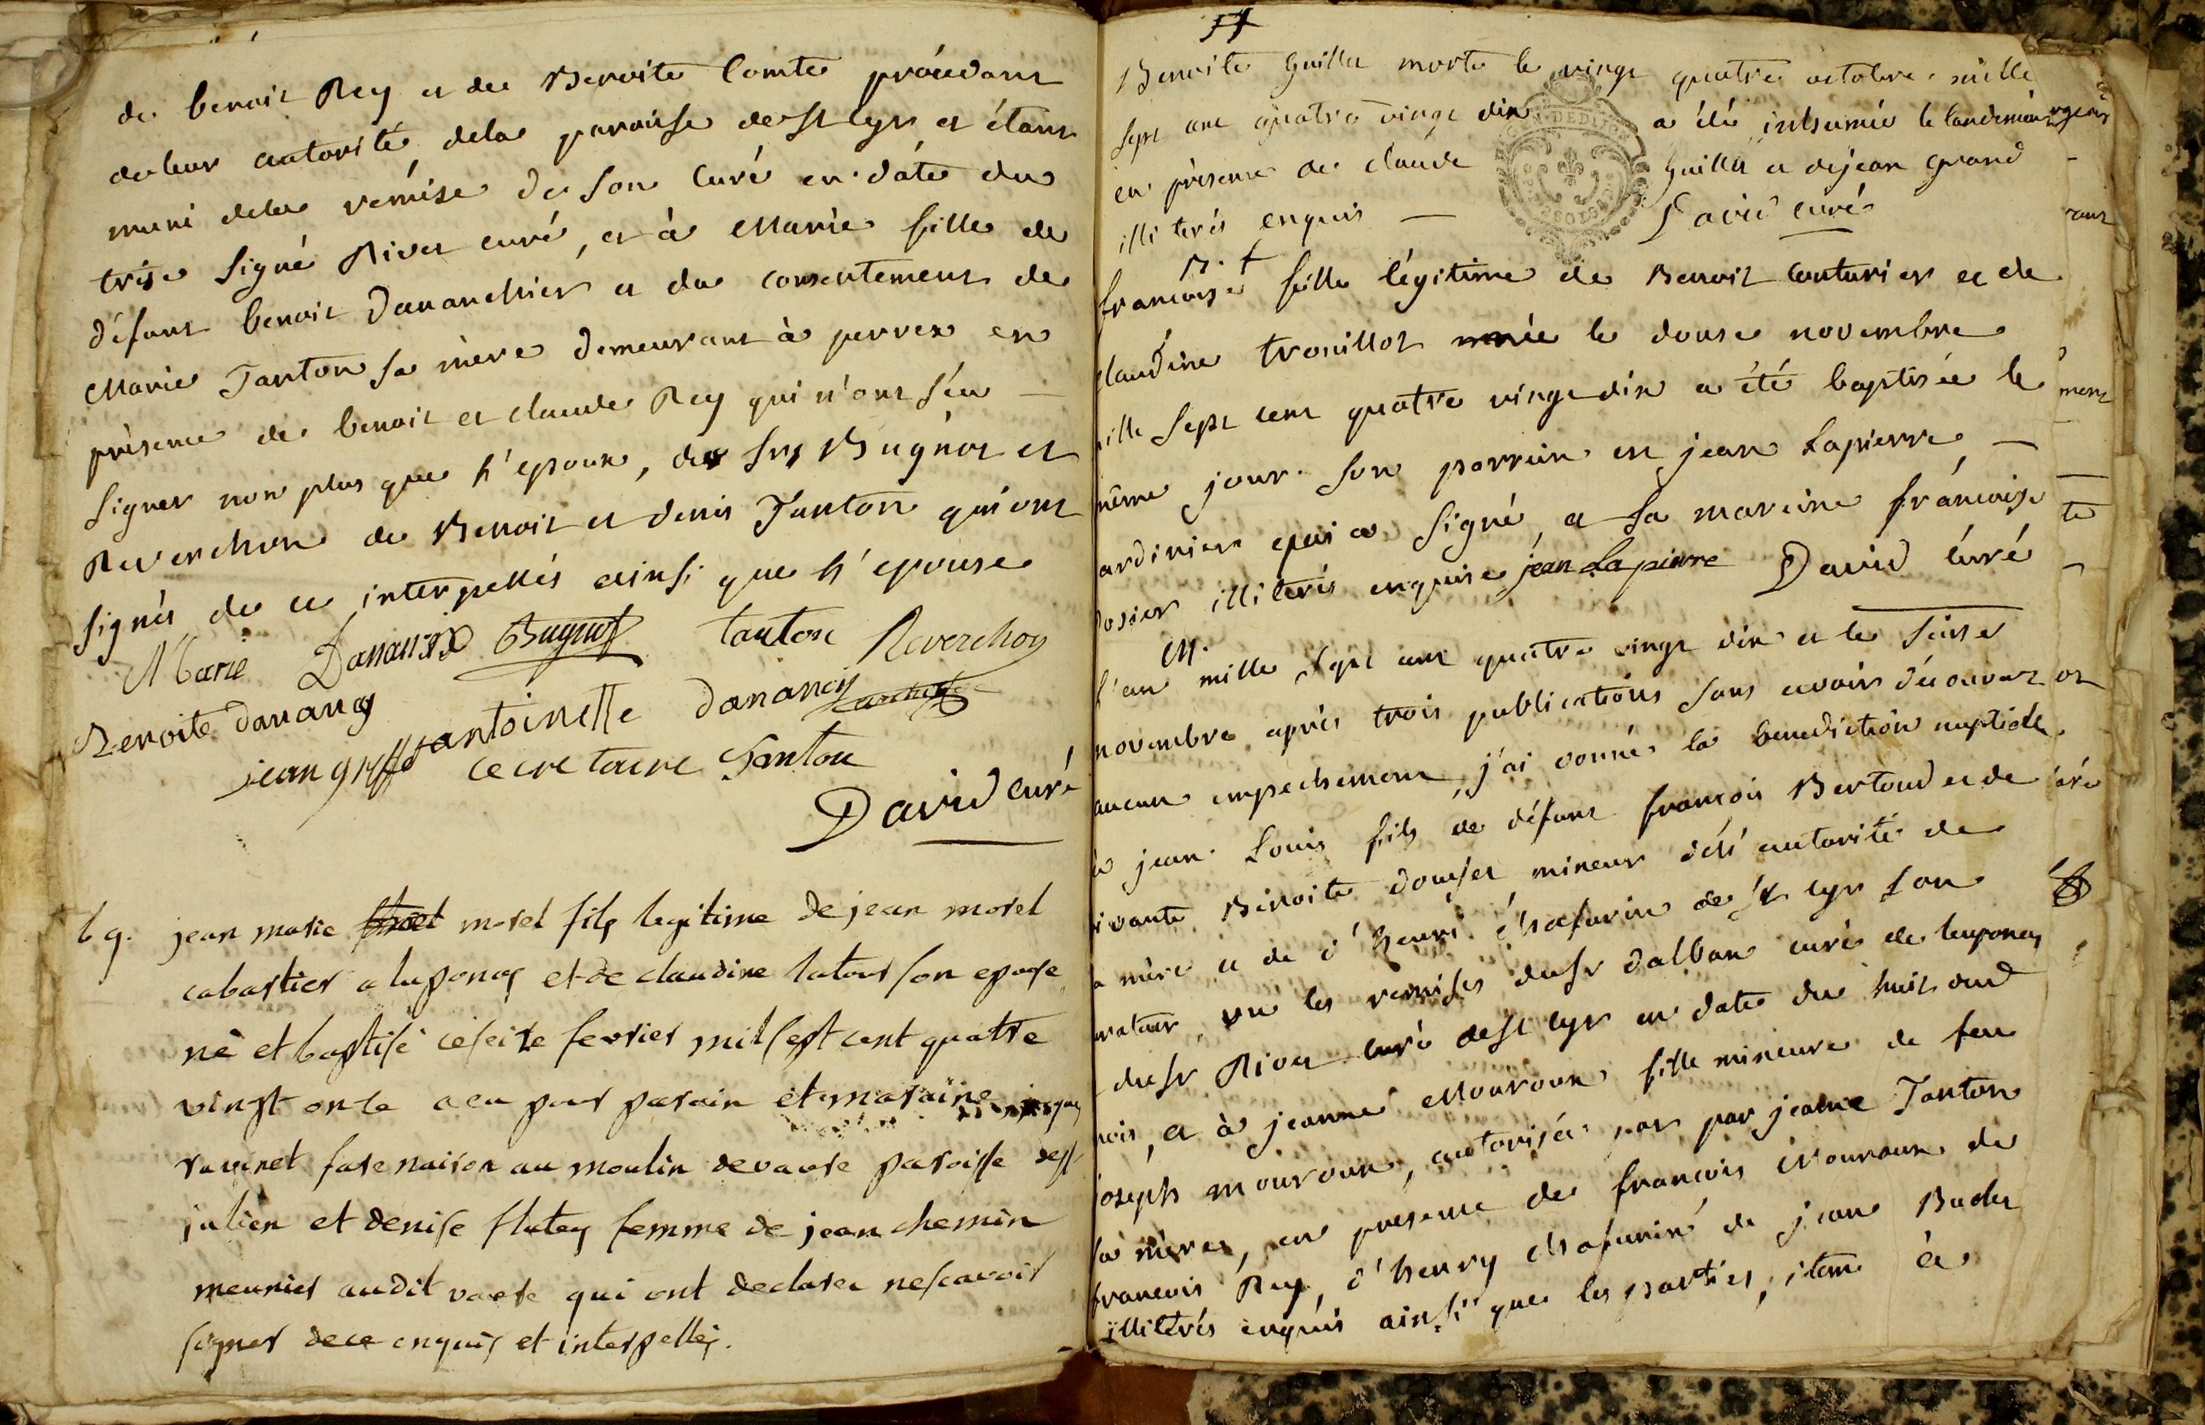 de benoit Rey et de Benoite Comte procedant
de leur autorité dela paroisse de st Cyr et étant
muni dela remise de son Curé en date du
trise signé River curé, et à Marie fille de
défunt benoit Dananchier et du consentement de
Marie Tanton sa mère demeurant à perrex en
présence de benoit et claude Rey qui n'ont sçu
signer non plus que l'epoux, des srs Bugnot et
Reverchon de Benoit et denis Tanton qui ont
signés de ce interpellés ainsi que l'epouse
Marie Bugnot tanton Reverchon
Benoite Danancy antoinette Danancy
jean secretaire Tanton
David curé
b g. jean marie morel fils legitime de jean morel
cabartier a luponas et de claudine latour son epouse
nè et baptisé ce seize fevrier mil sept cent quatre
vingt onze a eu pour parain et maraine
ravinet farenaison au moulin de vavre paroisse de st
julien et denise flutey femme de jean chemin
meunier audit vavre qui ont declarer ne scavoir
signer de ce enquis et interpellés.
Benoite Guillet morte le vingt quatre octobre mille
sept cent quatre vingt dix a été inhumée le landemain
en présence de claude Guillet et de jean grand
illiterés enquis David curé
B. f
francoise fille légitime de Benoit Couturier et de
claudine trouillot née le douse novembre
mille sept cent quatre vingt dix a été baptisée le
même jour. son parrein est jean Lapierre
jardinier qui a signé et sa mareine francoise
rosier illiterés enquise jean Lapierre David curé
M.
l'an mille sept cent quatre vingt dix et le seise
novembre après trois publications sans avoir découvert
aucun empechement, j'ai donné la benediction nuptiale
à jean Louis fils de défunt francois Bertoud et de
vivante Benoite douset mineur dela autorité de
sa mère et de d'henri Mafurin de st cyr son
curateur, vu les remises du sr dalban curé de luponas
du sr River curé de st cyr en date du huit dud
mois, et à jeanne Mouroux fille mineure de feu
joseph mouroux, autorisée par jeanne Tanton
sa mère, en presence de francois Mouroux de
francois Rey, d'henry Mafurin de jean Buder
illiterés enquis ainsi que les parties, item à